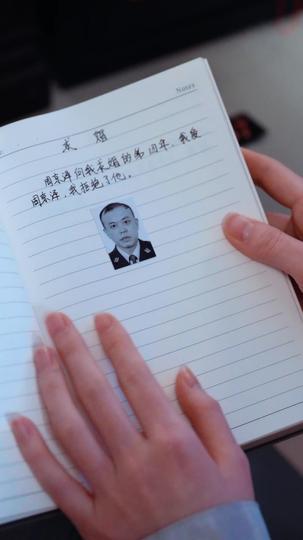 Notes
求婚
周京泽向我求婚的第四年，我爱
周京泽，我拒绝了他。